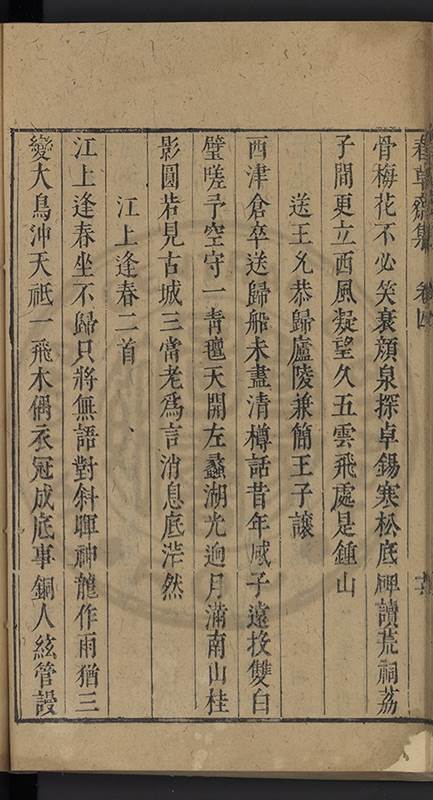 春草齋集 卷四
骨梅花不必笑衰顔泉探卓錫寒松底碑讀荒祠荔
子間更立西風凝望久五雲飛處是鍾山
送王允恭歸廬陵兼簡王子讓
西津倉卒送歸船未盡清樽話昔年感子遠投雙白
璧嗟予空守一青氊天開左蠡湖光迥月滿南山桂
影圓若見古城三當老爲言消息底茫然
江上逢春二首
江上逢春坐不歸只將無語對斜暉神龍作雨猶三
變大鳥沖天祗一飛木偶衣冠成底事銅人絃管設